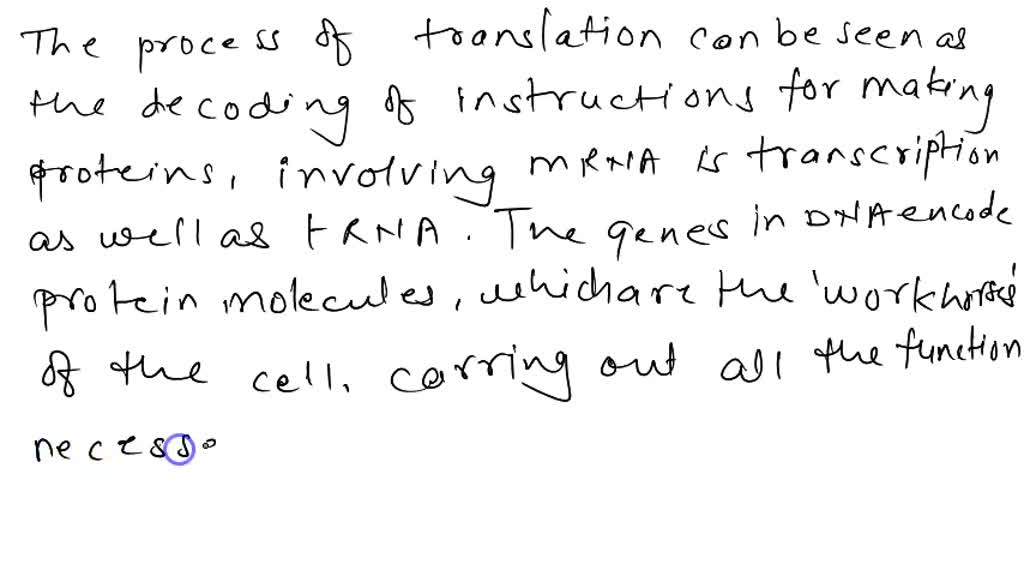 The process of translation can be seen as
the decoding of instructions for making
proteins, involving mRNA is transcription
as well as tRNA. The genes in DNA encode
protein molecules, which are the 'workhorses'
of the cell, carring out all the function
necess